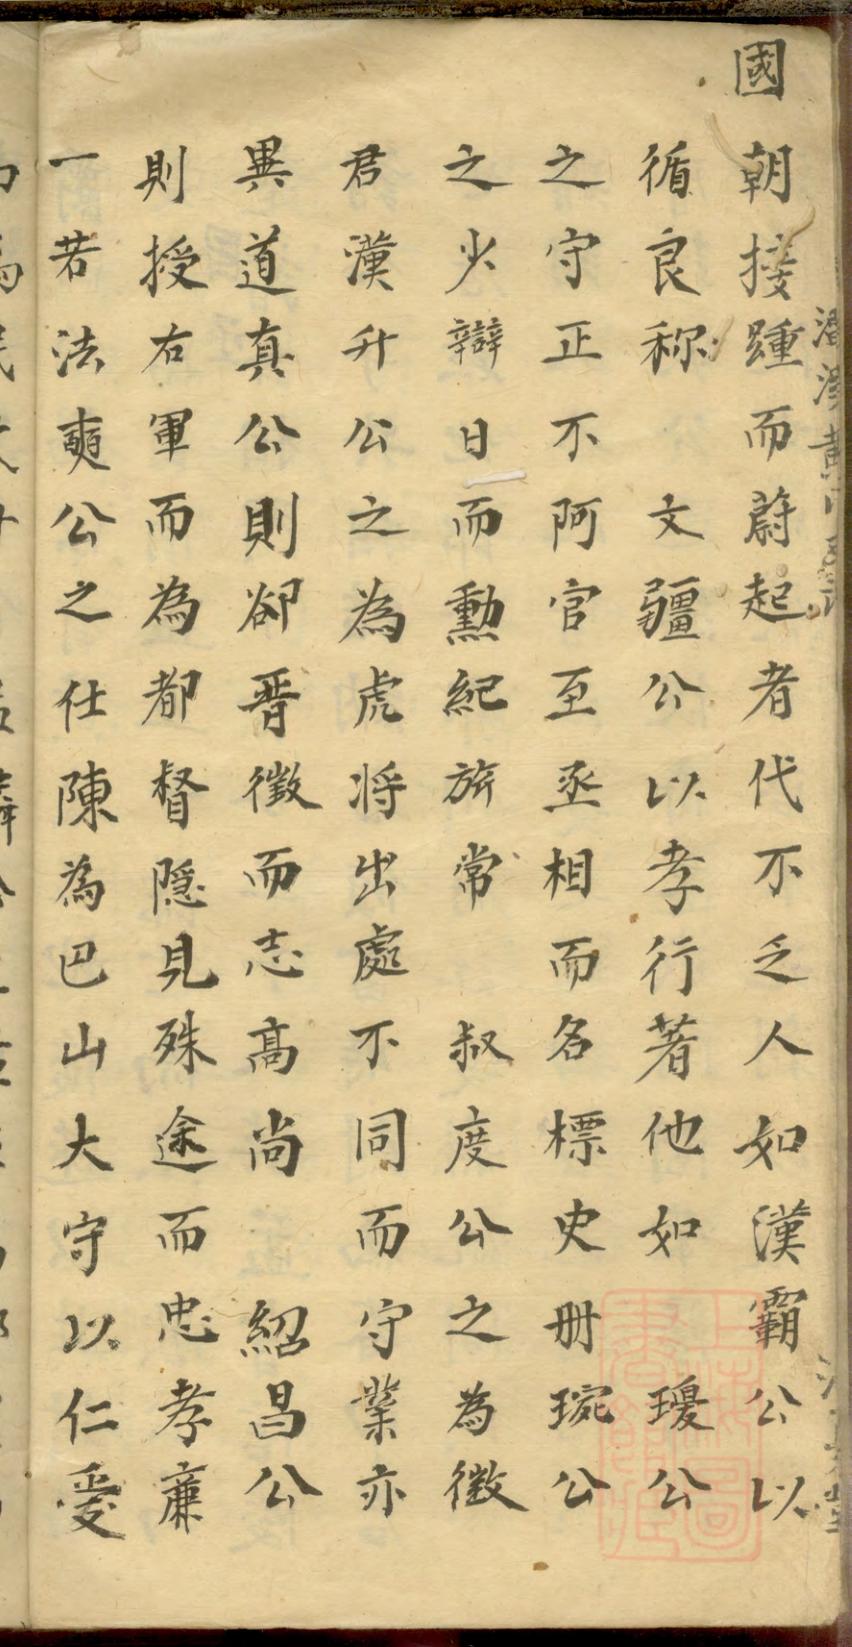 國朝接踵而蔚起者代不乏人如漢霸公以
循良称 文疆公以孝行著他如 瓊公
之守正不阿官至丞相而名標史册琬公
之少辯日而勳紀旂常 叔度公之為徵
君漢升公之為虎将出處不同而守業亦
異道真公則卻晋徵而志高尚 紹昌公
則授右軍而為都督隠見殊途而忠孝廉
一若法奭公之仕陳為巴山大守以仁愛